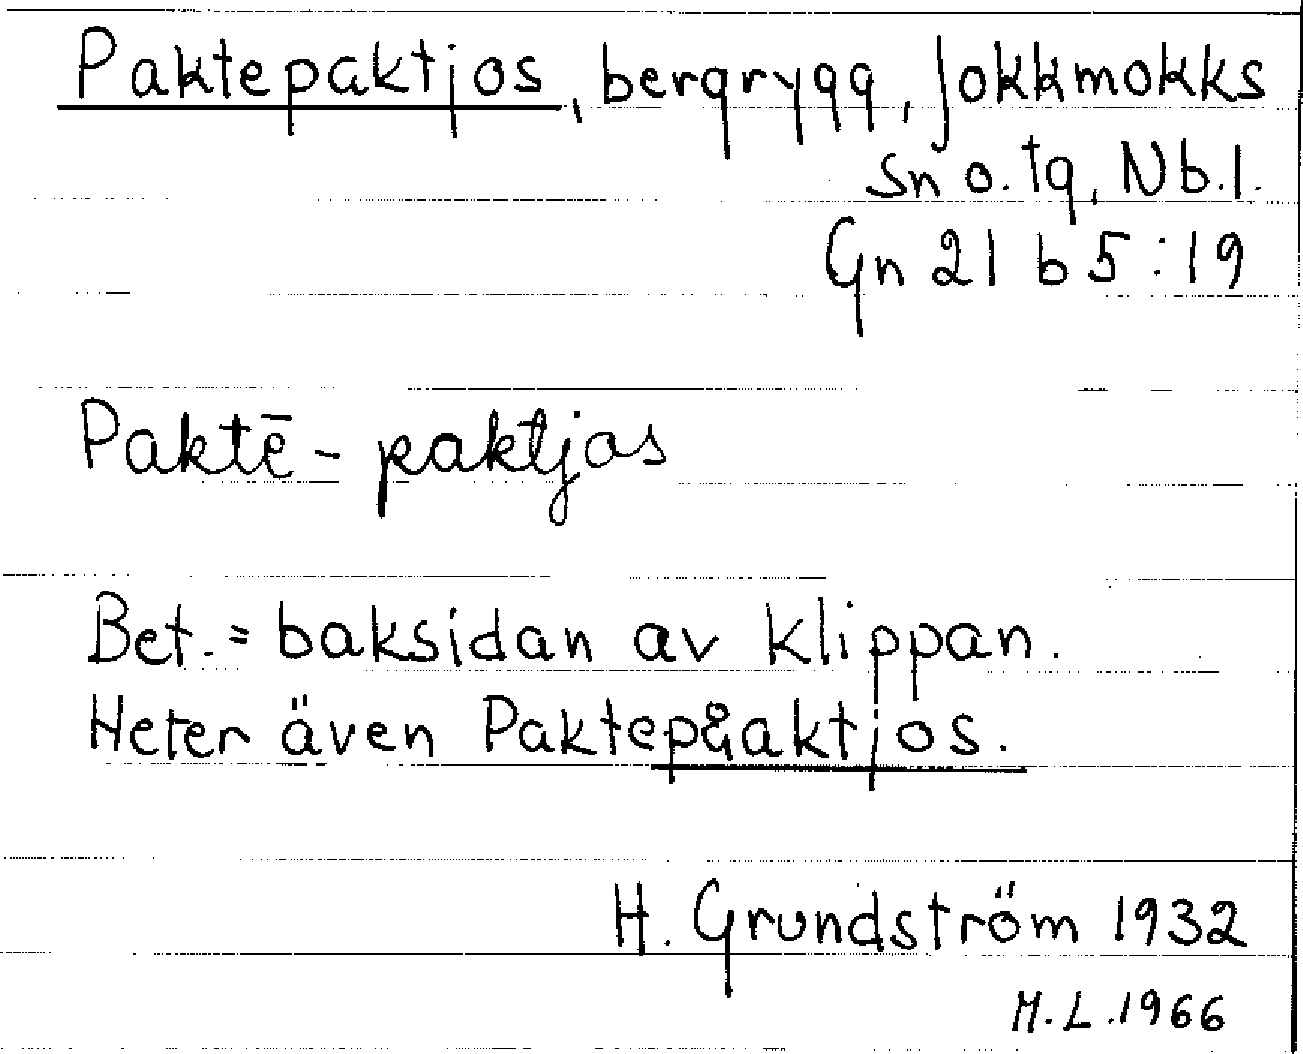 Paktepaktjos, bergrygg, Jokkmokks
sn o. tg, Nb.l.
Gn 21 b 5:19
Paktē-paktjas
Bet. = baksidan av klippan.
Heter även Paktepåaktjos.
H. Grundström 1932
M.L. 1966